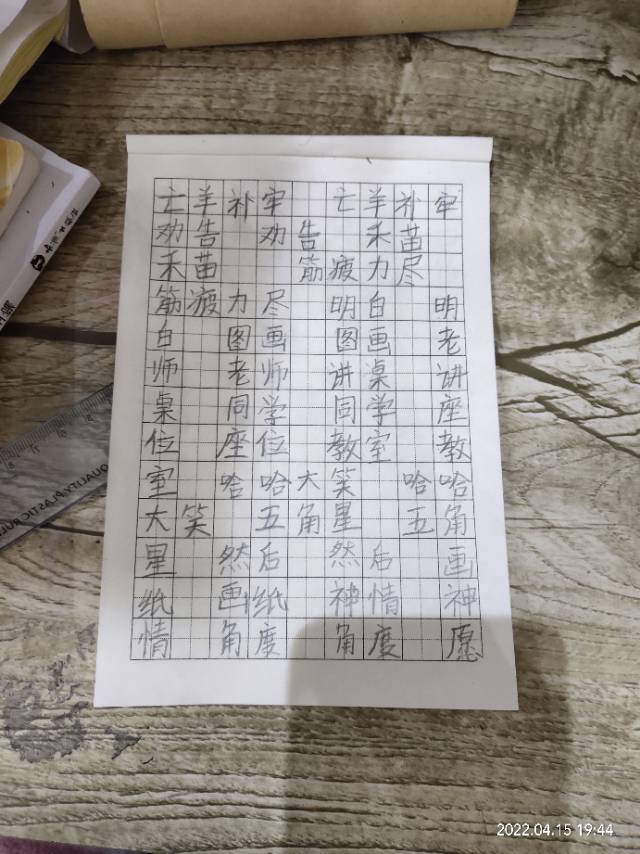 亡羊补牢 亡羊补牢
劝告 劝告 禾苗
禾苗 筋疲力尽
筋疲力尽 明白 明
白 图画 图画 老
师 老师 讲桌 讲
桌 同学 同学 座
位 座位 教室 教
室 哈哈大笑 哈哈
大笑 五角星 五角
星 然后 然后 画
纸 画纸 神情 神
情 角度 角度 愿
2022.04.15 19:44